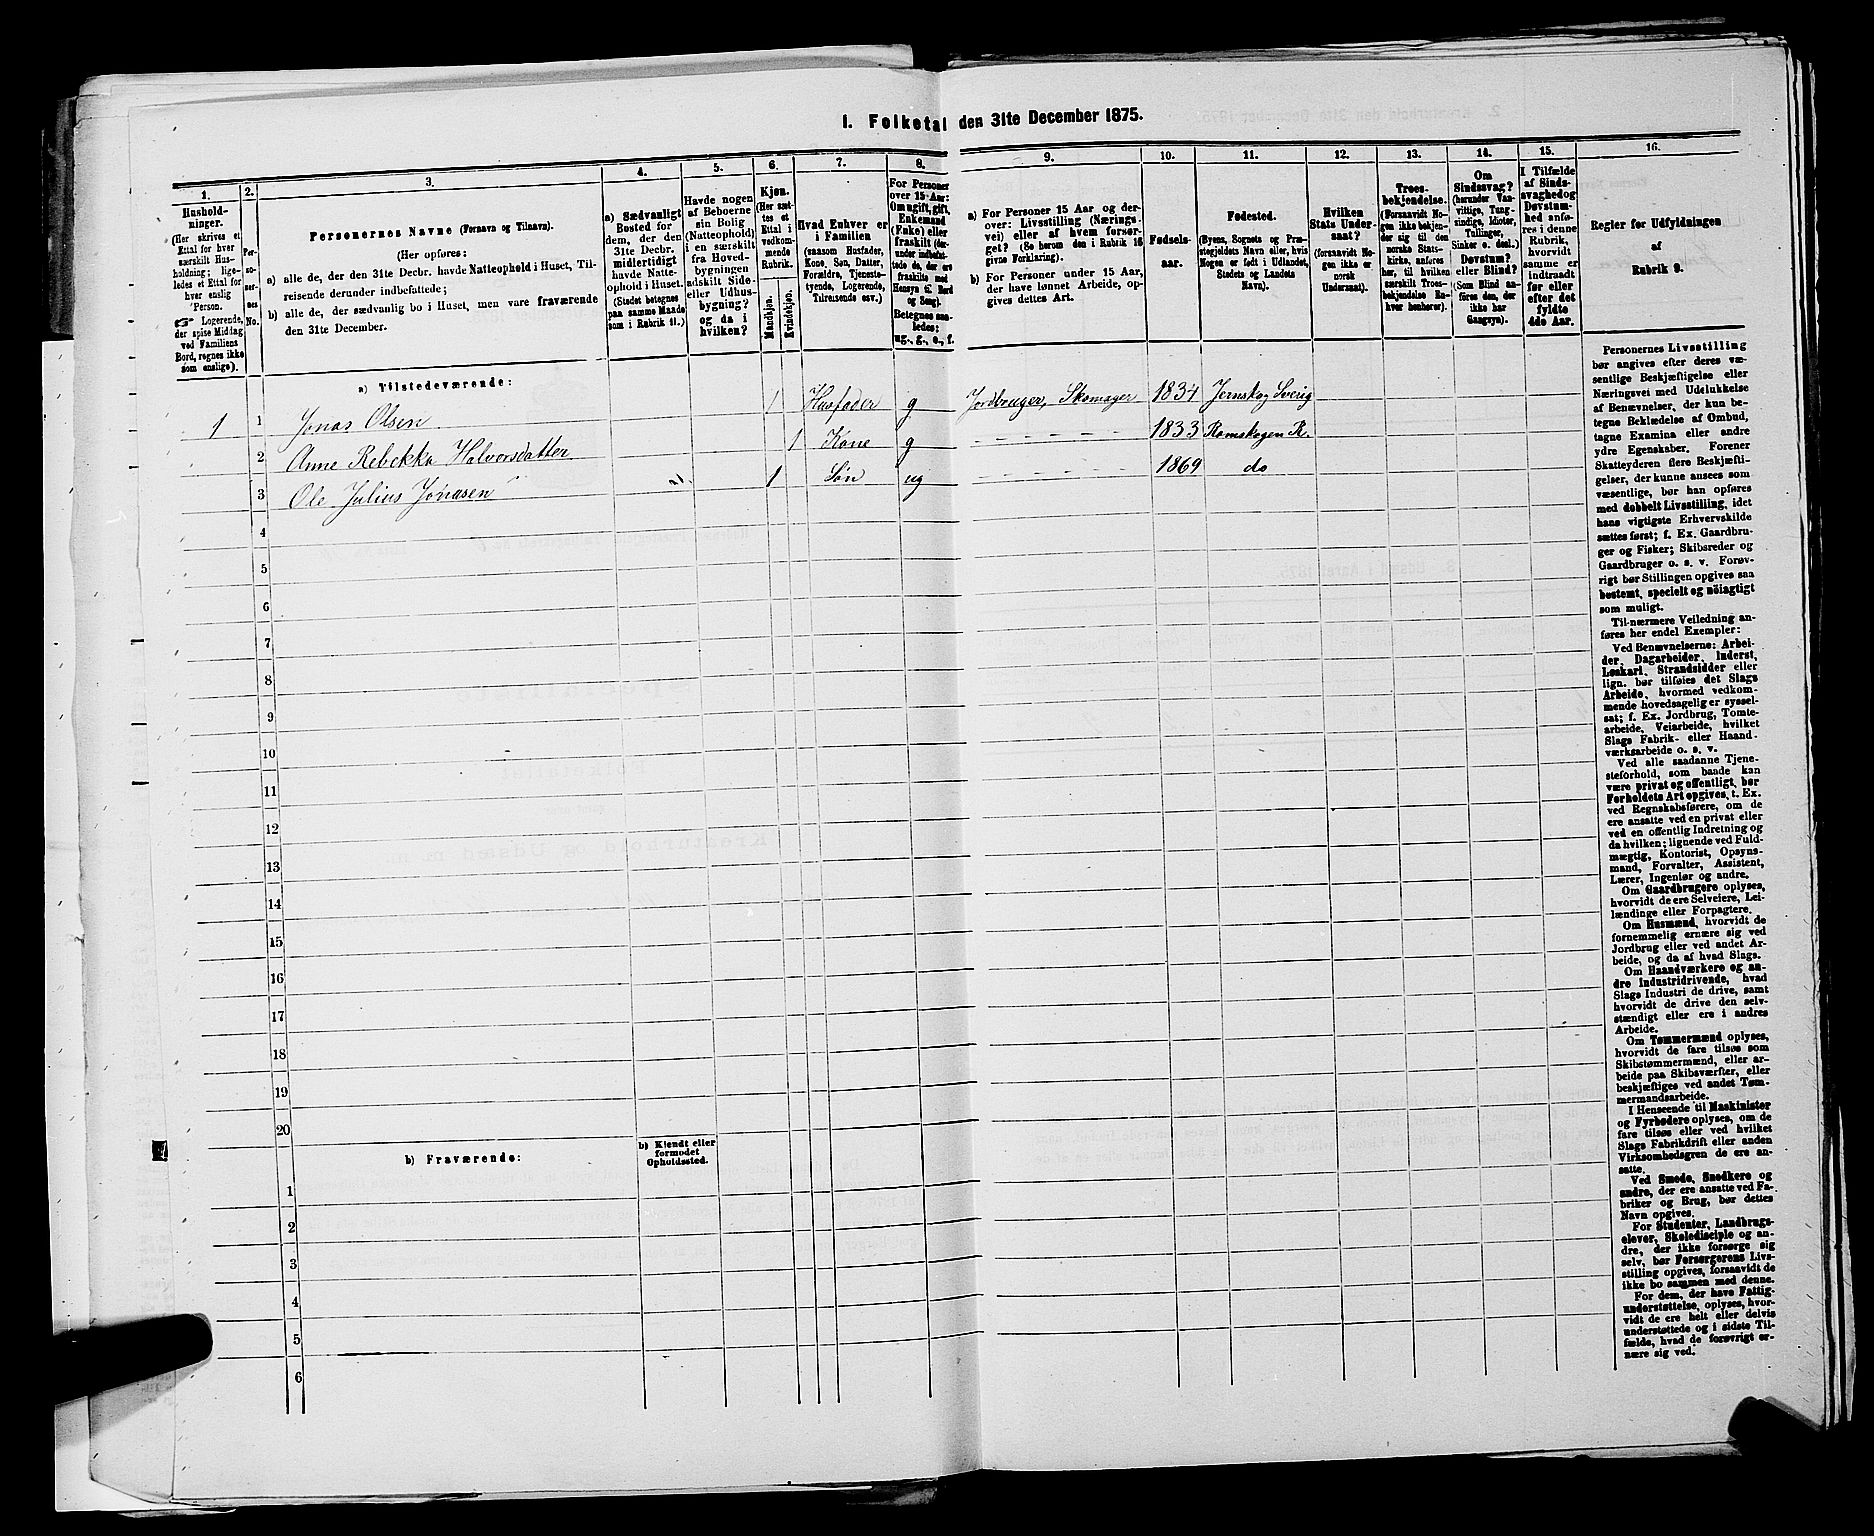 1. Folketal den 31te December 1875.
1.
2.
3.
4.
5.
6.
7.
8.
9.
10.
11.
12.
13.
14.
15.
16.
Hushold-
ninger.
(Her skrives et
Ettal for hver
særskilt Hus-
holdning; lige-
ledes et Ettal for
hver enslig
Person.
☞ Logerende,
der spise Middag
ved Familiens
Bord, regnes ikke
som enslige).
Per-
so-
ner-
nes
No.
Personernes Navne (Fornavn og Tilnavn).
(Her opføres:
a) alle de, der den 31te Decbr. havde Natteophold i Huset, Til-
reisende derunder indbefattede;
b) alle de, der sædvanlig bo i Huset, men vare fraværende
den 31te December.
a) Sædvanligt
Bosted for
dem, der den
31te Decbr.
midlertidigt
havde Natte-
ophold i Huset.
(Stedet betegnes
paa samme Maade
som i Rubrik 11.)
Havde nogen
af Beboerne
sin Bolig
(Natteophold)
i en særskilt
fra Hoved-
bygningen
adskilt Side-
eller Udhus-
bygning?
og da i
hvilken?
Kjøn.
(Her sæt-
tes et
Ettal i
vedkom-
mende
Rubrik.
Mandkjøn.
Kvindekjøn.
Hvad Enhver er
i Familien
(saasom Husfader,
Kone, Søn, Datter,
Forældre, Tjeneste-
tyende, Logerende,
Tilreisende osv.)
For Personer
over 15 Aar:
Om ugift, gift,
Enkemand
(Enke) eller
fraskilt (der-
under indbefat-
tede de, der ere
fraskilte med
Hensyn til Bord
og Seng).
Betegnes saa-
ledes:
ug., g., e., f.
a) For Personer 15 Aar og der-
over: Livsstilling (Nærings-
vei) eller af hvem forsør-
get? (Se herom den i Rubrik 16
givne Forklaring).
b) For Personer under 15 Aar,
der have lønnet Arbeide, op-
gives dettes Art.
Fødsels-
aar.
Fødested.
(Byens, Sognets og Præ-
stegjeldets Navn eller, hvis
Nogen er født i Udlandet,
Stedets og Landets
Navn).
Hvilken
Stats Under-
saat?
(forsaavidt No-
gen ikke er
norsk
Undersaat).
Troes-
bekjendelse.
(Forsaavidt No-
gen ikke bekjen-
der sig til den
norske Stats-
kirke, anføres
her, til hvilken
særskilt Troes-
bekjendelse Ra-
hver henhører).
Om
Sindssvag?
(herunder Van-
vittige, Tung-
sindige, Idioter,
Tullinger,
Sinker o. desl.)
Døvstum?
eller Blind?
(Som Blind an-
føres den, der
ikke har
Gangsyn).
I Tilfælde
af Sinds-
svaghed og
Døvstum-
hed anfø-
res i denne
Rubrik,
hvorvidt
samme er
indtraadt
før eller
efter det
fyldte
4de Aar.
Regler for Udfyldningen
af
Rubrik 9.
a) Tilstedeværende:
1 1 Jonas Olsen 1 Husfader g Jordbruger, Skomager 1834 Jernskog Sverig
2 Anne Rebekka Halvorsdatter 1 Kone g - - - - 1833 Romskogen R.
3 Ole Julius Jonasen 1 Søn ug - - - - 1869 do
4
5
6
7
8
9
10
11
12
13
14
15
16
17
18
19
20
b) Fraværende:
b) Kjendt eller
formodet
Opholdssted.
1
2
3
4
5
6
Personernes Livsstilling
bør angives efter deres væ-
sentlige Beskjæftigelse eller
Næringsvei med Udelukkelse
af Benævnelser, der kun be-
tegne Beklædelse af Ombud,
tagne Examina eller andre
ydre Egenskaber. Forener
Skatteyderen flere Beskjæfti-
gelser, der kunne ansees som
væsentlige, bør han opføres
med dobbelt Livsstilling, idet
hans vigtigste Erhvervskilde
sættes først; f. Ex. Gaardbru-
ger og Fisker; Skibsreder og
Gaardbruger o. s. v. Forøv-
rigt bør Stillingen opgives saa
bestemt, specielt og nöiagtigt
som muligt.
Til nærmere Veiledning an-
føres her endel Exempler:
Ved Benævnelserne: Arbei-
der, Dagarbeider, Inderst,
Løskarl, Strandsidder eller
lign. bør tilføies det Slags
Arbeide, hvormed vedkom-
mende hovedsagelig er syssel-
sat; f. Ex. Jordbrug, Tomte-
arbeide, Veiarbeide, hvilket
Slags Fabrik- eller Haand-
værksarbeide o. s. v.
Ved alle saadanne Tjene-
steforhold, som baade kan
være privat og offentligt, bør
Forholdets Art opgives, t. Ex.
ved Regnskabsførere, om de
ere ansatte ved en privat eller
ved en offentlig Indretning og
da hvilken; lignende ved Fuld-
mægtig, Kontorist, Opsyns-
mand, Forvalter, Assistent,
Lærer, Ingeniør og andre.
Om Gaardbrugere oplyses,
hvorvidt de ere Selveiere, Lei-
lændinge eller Forpagtere.
Om Husmænd, hvorvidt de
fornemmelig ernære sig ved
Jordbrug eller ved andet Ar-
beide, og da af hvad Slags.
Om Haandværkere og an-
dre Industridrivende, hvad
Slags Industri de drive, samt
hvorvidt de drive den selv-
stændigt eller ere i andres
Arbeide.
Om Tømmermænd oplyses,
hvorvidt de fare tilsøs som
Skibstømmermænd, eller ar-
beide paa Skibsværfter, eller
beskjæftiges ved andet Tøm-
mermandsarbeide.
I Henseende til Maskinister
og Fyrbødere oplyses, om de
fare tilsøs eller ved hvilket
Slags Fabrikdrift eller anden
Virksomhedsgren de ere an-
satte.
Ved Smede, Snedkere og
andre, der ere ansatte ved Fa-
briker og Brug, bør dettes
Navn opgives.
For Studenter, Landbrugs-
elever, Skoledisciple og an-
dre, der ikke forsørge sig
selv, bør Forsørgerens Livs-
stilling opgives, forsaavidt de
ikke bo sammen med denne.
For dem, der have Fattig-
understøttelse, oplyses, hvor-
vidt de ere helt eller delvis
understøttede og i sidste Til-
fælde, hvad de forøvrigt er-
nære sig ved.